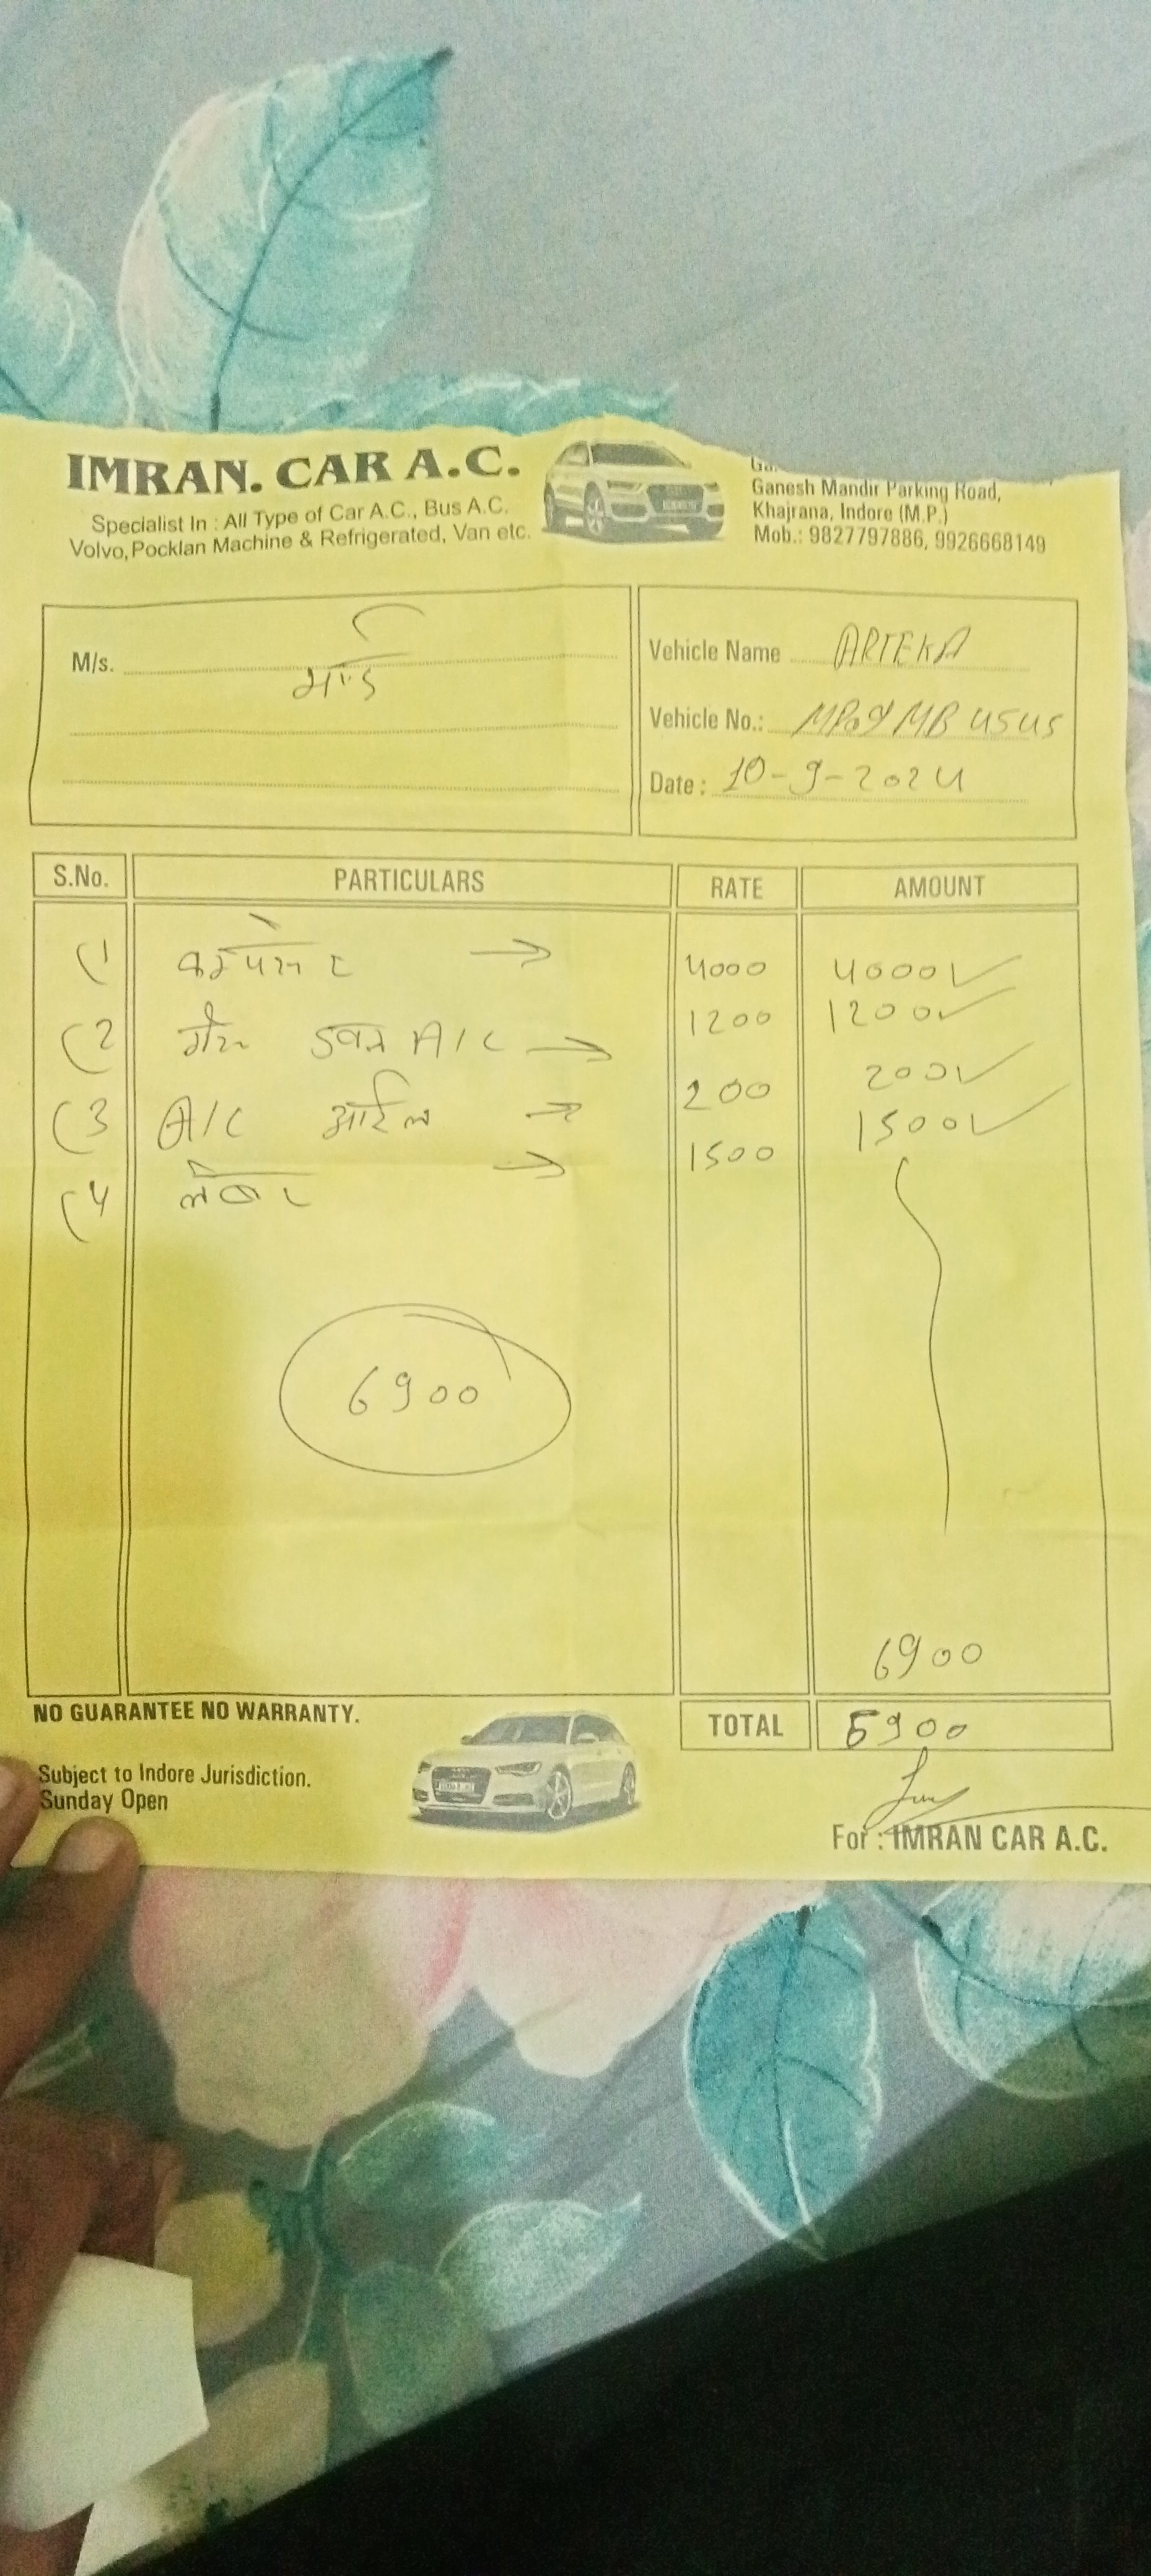 IMRAN. CAR A.C.
Specialist In : All Type of Car A.C., Bus A.C.
Volvo, Pocklan Machine & Refrigerated, Van etc.
Ganesh Mandir Parking Road,
Khajrana, Indore (M.P.)
Mob.: 9827797886, 9926668149
M/s.
Vehicle Name ARTEKA
Vehicle No.: MP09 MB 4545
Date : 10-9-2024
S.No. PARTICULARS RATE AMOUNT
(1 → 4000 4000
(2 गैस A/C → 1200 1200
(3 A/C आईल → 200 200
(4 लेबर → 1500 1500
6900
6900
NO GUARANTEE NO WARRANTY.
TOTAL 6900
Subject to Indore Jurisdiction.
Sunday Open
For : IMRAN CAR A.C.